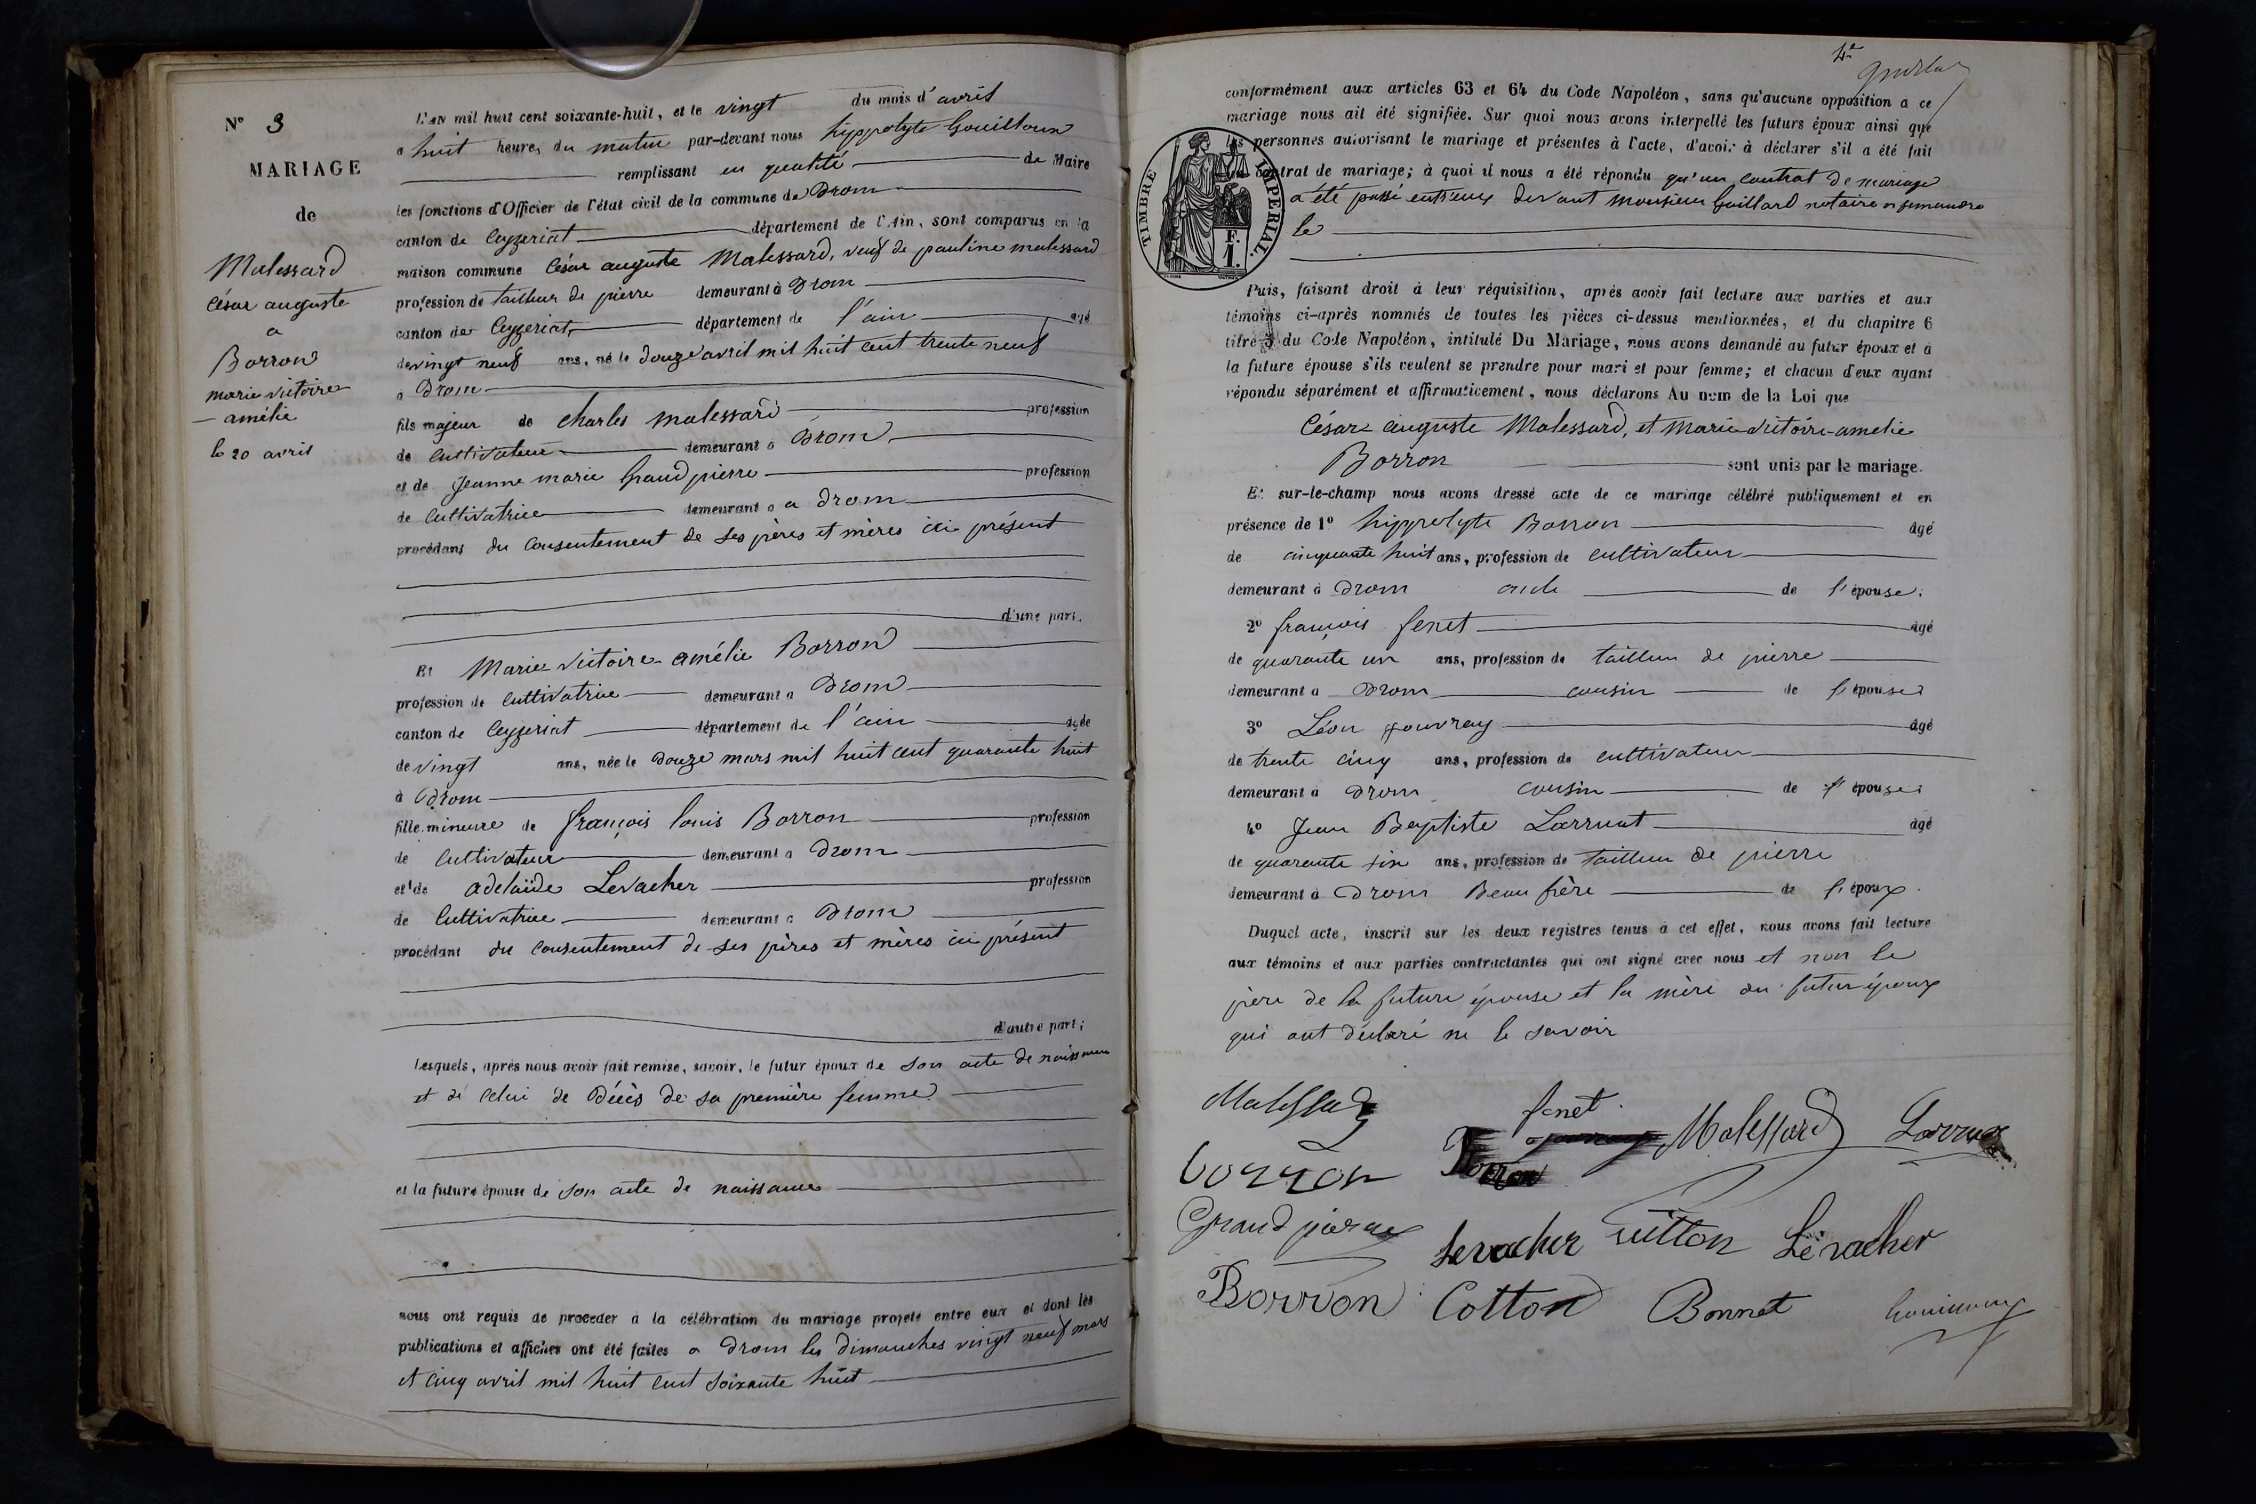 N° 3
MARIAGE
de
Malessard
César auguste
a
Borron
marie victoire
amélie
le 20 avril
L'an mil huit cent soixante-huit, et le vingt du mois d'avril
a huit heures du matin par-devant nous hyppolyte Gouilloux
remplissant en qualité de Maire
les fonctions d'Officier de l'état civil de la commune de Drom
canton de Ceyzeriat département de l'Ain, sont comparus en la
maison commune César auguste Malessard, veuf de pauline malessard
profession de tailleur de pierre demeurant à Drom
canton de Ceyzeriat département de l'ain agé
de vingt neuf ans, né le douze avril mil huit cent trente neuf
a Drom
fils majeur de charles malessard profession
de cultivateur demeurant a Drom
et de Jeanne marie Grandpierre profession
de cultivatrice demeurant a a Drom
procédant du consentement de ses pères et mères ici présent
d'une part.
Et Marie victoire amélie Borron
profession de cultivatrice demeurant a Drom
canton de Ceyzeriat département de l'ain agée
de vingt ans, née le douze mars mil huit cent quarante huit
à Drom
fille mineure de françois louis Borron profession
de cultivateur demeurant a Drom
et de adelaïde Levacher profession
de Cultivatrice demeurant a Drom
procédant du consentement de ses pères et mères ici présent
d'autre part;
Lesquels, après nous avoir fait remise, savoir, le futur époux de son acte de naissance
et de celui de décès de sa première femme
et la future épouse de son acte de naissance
nous ont requis de procéder à la célébration du mariage projeté entre eux et dont les
publications et affiches ont été faites a Drom les dimanches vingt neuf mars
et cinq avril mil huit cent soixante huit
conformément aux articles 63 et 64 du Code Napoléon, sans qu'aucune opposition à ce
mariage nous ait été signifiée. Sur quoi nous avons interpellé les futurs époux ainsi que
les personnes autorisant le mariage et présentes à l'acte, d'avoir à déclarer s'il a été fait
contrat de mariage; à quoi il nous a été répondu qu'un contrat de mariage
a été passé entr'eux devant monsieur Guillard notaire
le
TIMBRE IMPERIAL
F.
1.
Puis, faisant droit à leur réquisition, après avoir fait lecture aux parties et aux
témoins ci-après nommés de toutes les pièces ci-dessus mentionnées, et du chapitre 6
titre 5 du Code Napoléon, intitulé Du Mariage, nous avons demandé au futur époux et à
la future épouse s'ils veulent se prendre pour mari et pour femme; et chacun d'eux ayant
répondu séparément et affirmativement, nous déclarons Au nom de la Loi que
César auguste Malessard, et marie victoire amelie
Borron sont unis par le mariage.
Et sur-le-champ nous avons dressé acte de ce mariage célébré publiquement et en
présence de 1° hippolyte Borron âgé
de cinquante huit ans, profession de cultivateur
demeurant à Drom oncle de l'épouse.
2° françois fenet âgé
de quarante un ans, profession de tailleur de pierre
demeurant a Drom cousin de l'épouse
3° Léon gouvray âgé
de trente cinq ans, profession de cultivateur
demeurant à Drom cousin de l'épouse
4° Jean Baptiste Larruat âgé
de quarante six ans, profession de tailleur de pierre
demeurant à Drom Beau frère de l'époux.
Duquel acte, inscrit sur les deux registres tenus à cet effet, nous avons fait lecture
aux témoins et aux parties contractantes qui ont signé avec nous et non le
père de la future épouse et la mère du futur époux
qui ont déclaré ne le savoir
Malessard
fenet
Malessard
borron
Borron
Grandpierre
Levacher
vuitton
Lévacher
Borron
Cotton
Bonnet
Gouilloux